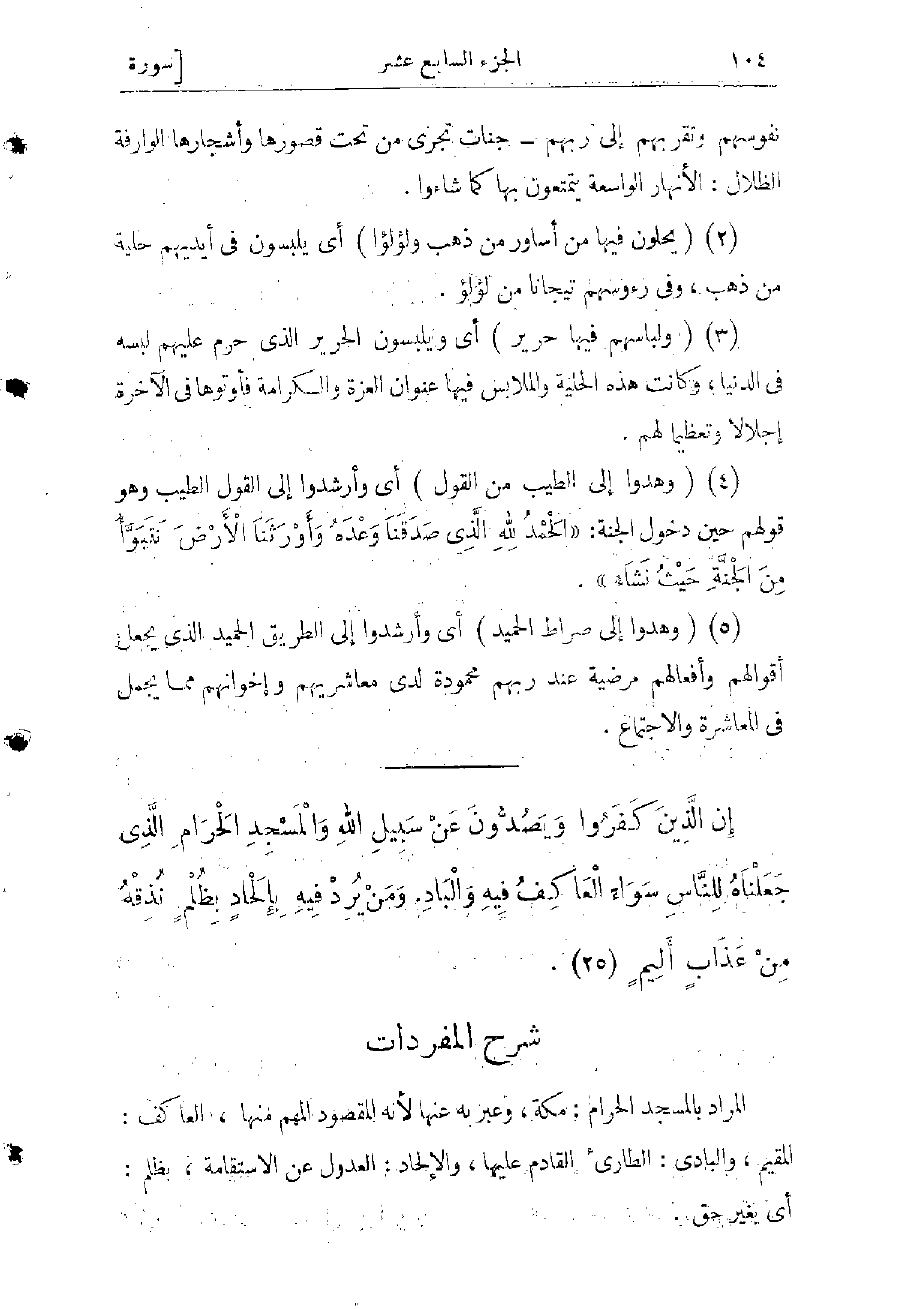 ١٠٤ الجزء السابع عشر [سورة
نفوسهم وتقربهم إلى ربهم – جنات تجرى من تحت قصورها وأشجارها الوارفة
الظلال : الأنهار الواسعة يتمتعون بها كما شاءوا .
(٢) ( يحلون فيها من أساور من ذهب ولؤلؤا ) أى يلبسون فى أيديهم حلية
من ذهب ، وفى رءوسهم تيجانا من لؤلؤ .
(٣) ( ولباسهم فيها حرير ) أى ويلبسون الحرير الذى حرم عليهم لبسه
فى الدنيا ، وكانت هذه الحلية والملابس فيها عنوان العزة والكرامة فأوتوها فى الآخرة
إجلالا وتعظيما لهم .
(٤) ( وهدوا إلى الطيب من القول ) أى وأرشدوا إلى القول الطيب وهو
قولهم حين دخول الجنة: «الْحَمْدُ لِلهِ الَّذِى صَدَقَنَا وَعْدَهُ وَأَوْرَثَنَا الْأَرْضَ نَتَبَوَّأُ
مِنَ الْجَنَّةِ حَيْثُ نَشَاءُ» .
(٥) ( وهدوا إلى صراط الحميد ) أى وأرشدوا إلى الطريق الحميد الذى يجعل
أقوالهم وأفعالهم مرضية عند ربهم محمودة لدى معاشريهم وإخوانهم مما يجمل
فى المعاشرة والاجتماع .
إن الَّذِينَ كَفَرُوا وَيَصُدُّونَ عَنْ سَبِيلِ اللهِ وَالْمَسْجِدِ الْحَرَامِ الَّذِى
جَعَلْنَاهُ لِلنَّاسِ سَوَاءً الْعَاكِفُ فِيهِ وَالْبَادِ، وَمَنْ يُرِدْ فِيهِ بِإِلْحَادٍ بِظُلْمٍ نُذِقْهُ
مِنْ عَذَابٍ أَلِيمٍ (٢٥) .
شرح المفردات
المراد بالمسجد الحرام : مكة ، وعبر به عنها لأنه المقصود المهم منها ، العاكف :
المقيم ، والبادى : الطارئ القادم عليها ، والإلحاد : العدول عن الاستقامة ، بظلم :
أى بغير حق .